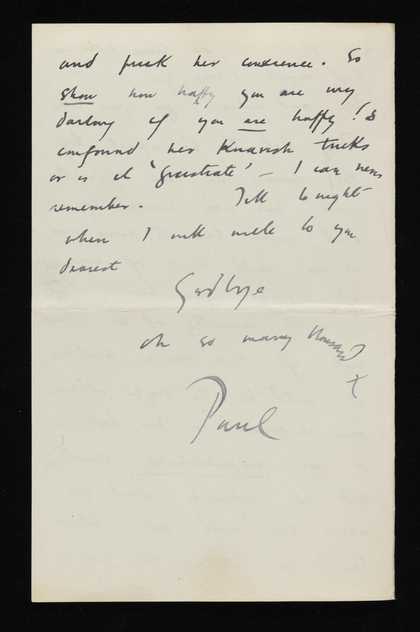 and prick her conscience. So
show how happy you are my
darling if you are happy! &
confound her Knavish tricks
or is it 'frustrate' – I can never
remember. Till tonight
when I will write to you
dearest
Goodbye
oh so many thousand
x
Paul